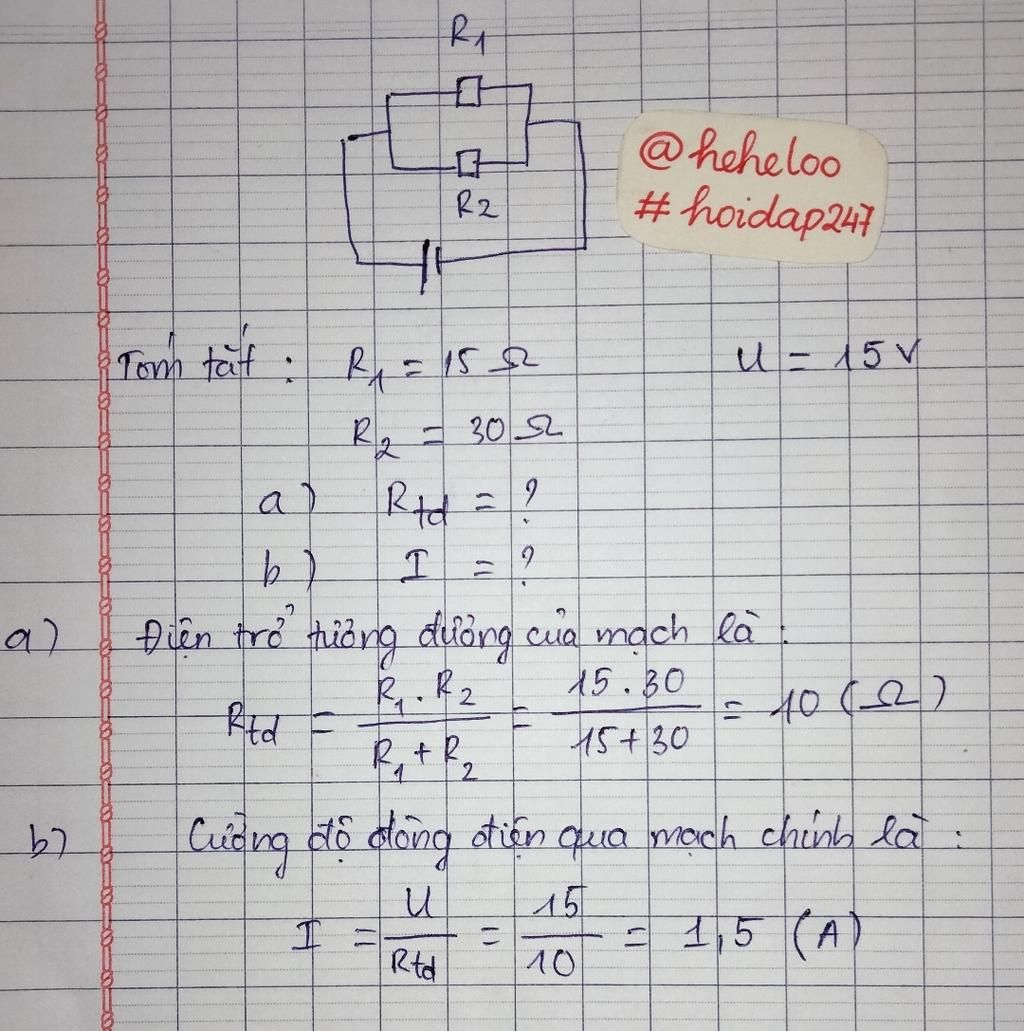 R1
R2
@heheloo
# hoidap247
Tóm tắt : R1 = 15 Ω U = 15 V
R2 = 30 Ω
a) Rtd = ?
b) I = ?
a) Điện trở tương đương của mạch là :
Rtd = R1 . R2 / R1 + R2 = 15 . 30 / 15 + 30 = 10 (Ω)
b) Cường độ dòng điện qua mạch chính là :
I = U / Rtd = 15 / 10 = 1,5 (A)